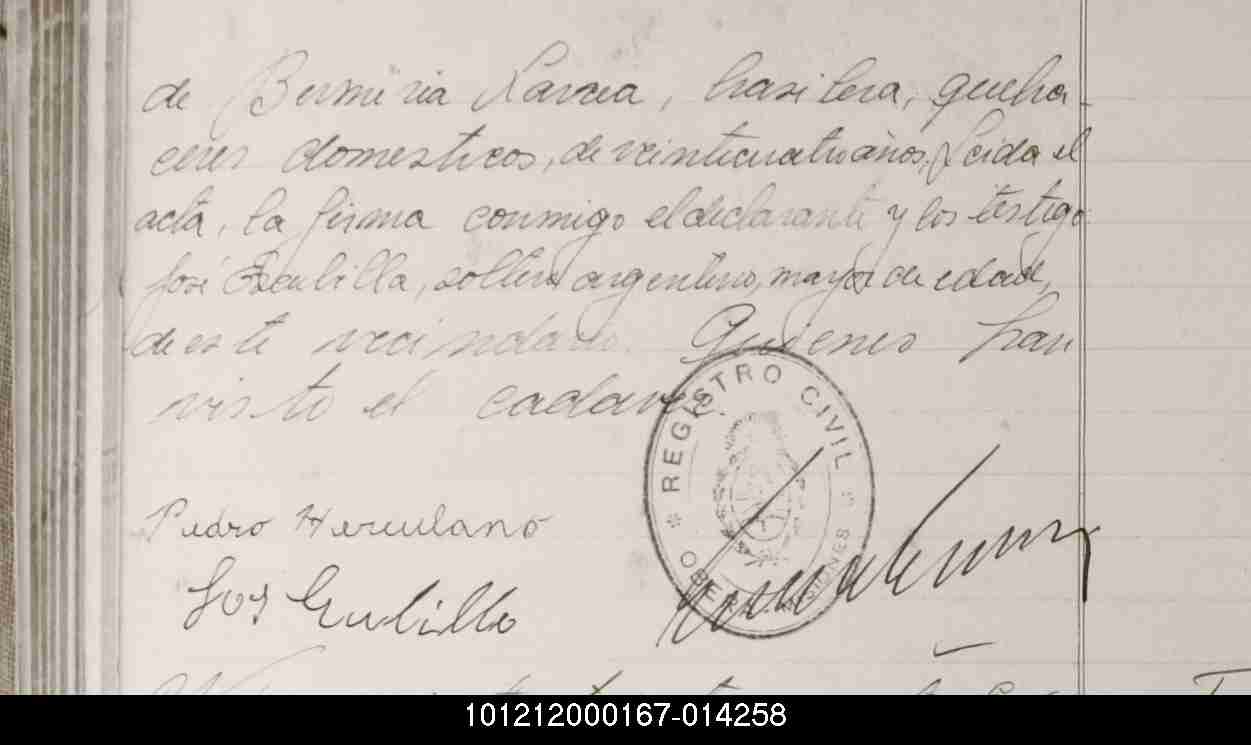 de Bermiria Larrea, brasilera, queha-
ceres domesticos, de veinticuatro años. Leida el
acta, la firma conmigo el declarante y los testigo
José Esculilla, soltero argentino, mayor de edad,
de este vecindario. Quienes han
visto el cadaver.
REGISTRO CIVIL
OBERA MISIONES
Pedro Herculano
101212000167-014258